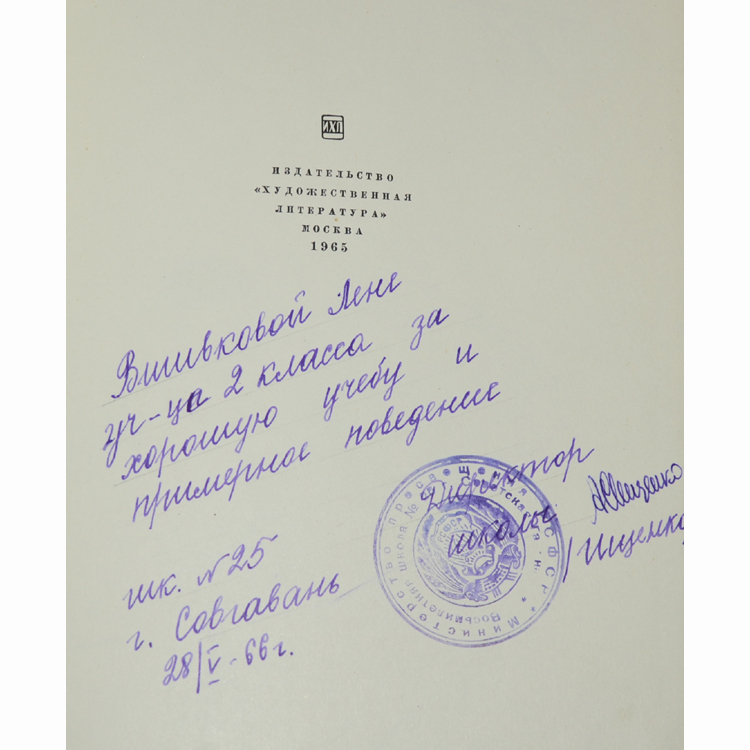 ИХЛ
ИЗДАТЕЛЬСТВО
«ХУДОЖЕСТВЕННАЯ
ЛИТЕРАТУРА»
МОСКВА
1965
Вшивковой Лене
уч-ца 2 класса за
хорошую учебу и
примерное поведение
Директор
школы
/Ищенко
шк. №25
г. Совгавань
28/V-66г.
Министерство просвещения РСФСР
Восьмилетняя школа №